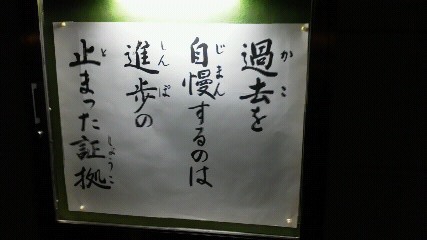 過去を
自慢するのは
進歩の
止まった証拠